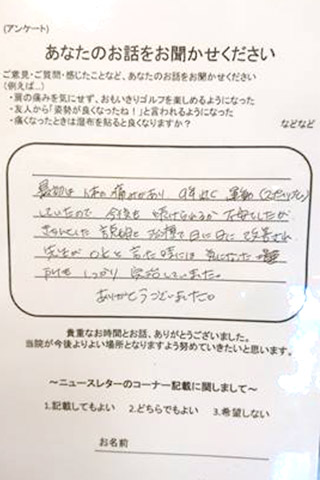 (アンケート)
あなたのお話をお聞かせください
ご意見・ご質問・感じたことなど、あなたのお話をお聞かせください
(例えば...)
・肩の痛みを気にせず、おもいきりゴルフを楽しめるようになった
・友人から「姿勢が良くなったね！」と言われるようになった
・痛くなったときは湿布を貼ると良くなりますか？ などなど
最初は 体の痛みがあり 9年近く 運動
していたので 今後も 続けられるか 不安でしたが
きちんとした 説明と 治療で 日に日に 改善され
先生が 時には 気になった
しっかり 完治していました。
ありがとうございました。
貴重なお時間とお話、ありがとうございました。
当院が今後よりよい場所となりますよう努めていきたいと思います。
～ニュースレターのコーナー記載に関しまして～
1.記載してもよい 2.どちらでもよい 3.希望しない
お名前